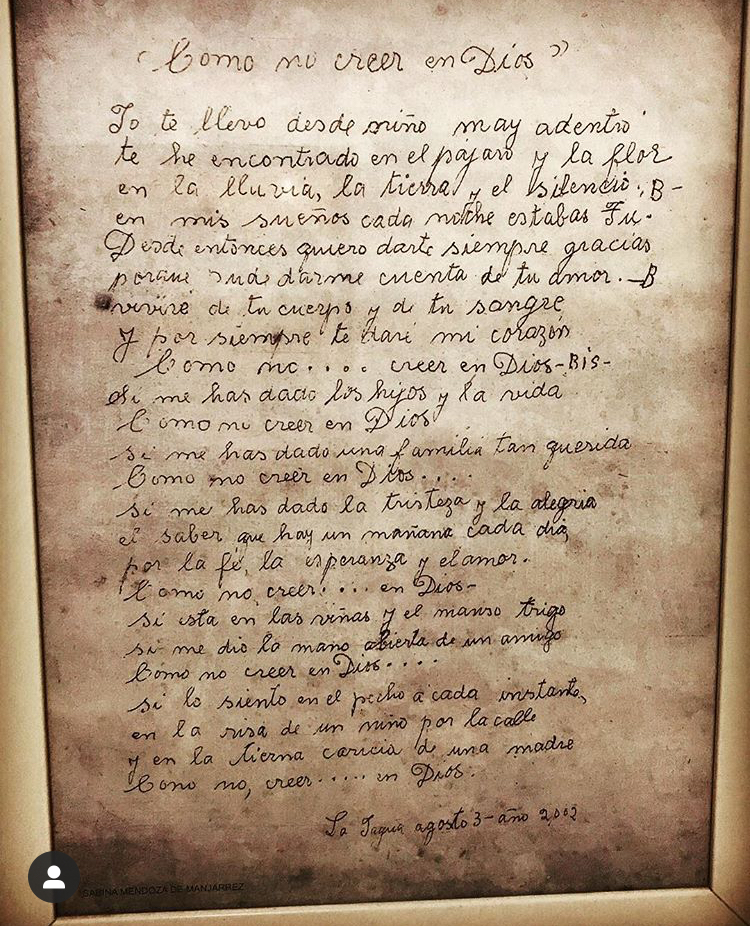 "Como no creer en Dios"
Yo te llevo desde niño muy adentro
te he encontrado en el pájaro y la flor
en la lluvia, la tierra y el silencio. B-
en mis sueños cada nothe estabas Tu.
Desde entonces quiero darte siempre gracias
porque pude darme cuenta de tu amor. -B
viviré de tu cuerpo y de tu sangre
Y por siempre te daré mi corazón
Como no.... creer en Dios-BIS-
Si me has dado los hijos y la vida
Como no creer en Dios
si me has dado una familia tan querida
Como no creer en Dios....
si me has dado la tristeza y la alegria
el saber que hay un mañana cada dia
por la fé, la esperanza y el amor.
Como no creer.... en Dios-
si esta en las viñas y el manso trigo
si me dio la mano abierta de un amigo
Como no creer en Dios....
si lo siento en el pecho a cada instante,
en la risa de un niño por la calle
y en la tierna caricia de una madre
Como no, creer..... en Dios.
La Tagua agosto 3-año 2002
SABINA MENDOZA DE MANJARREZ